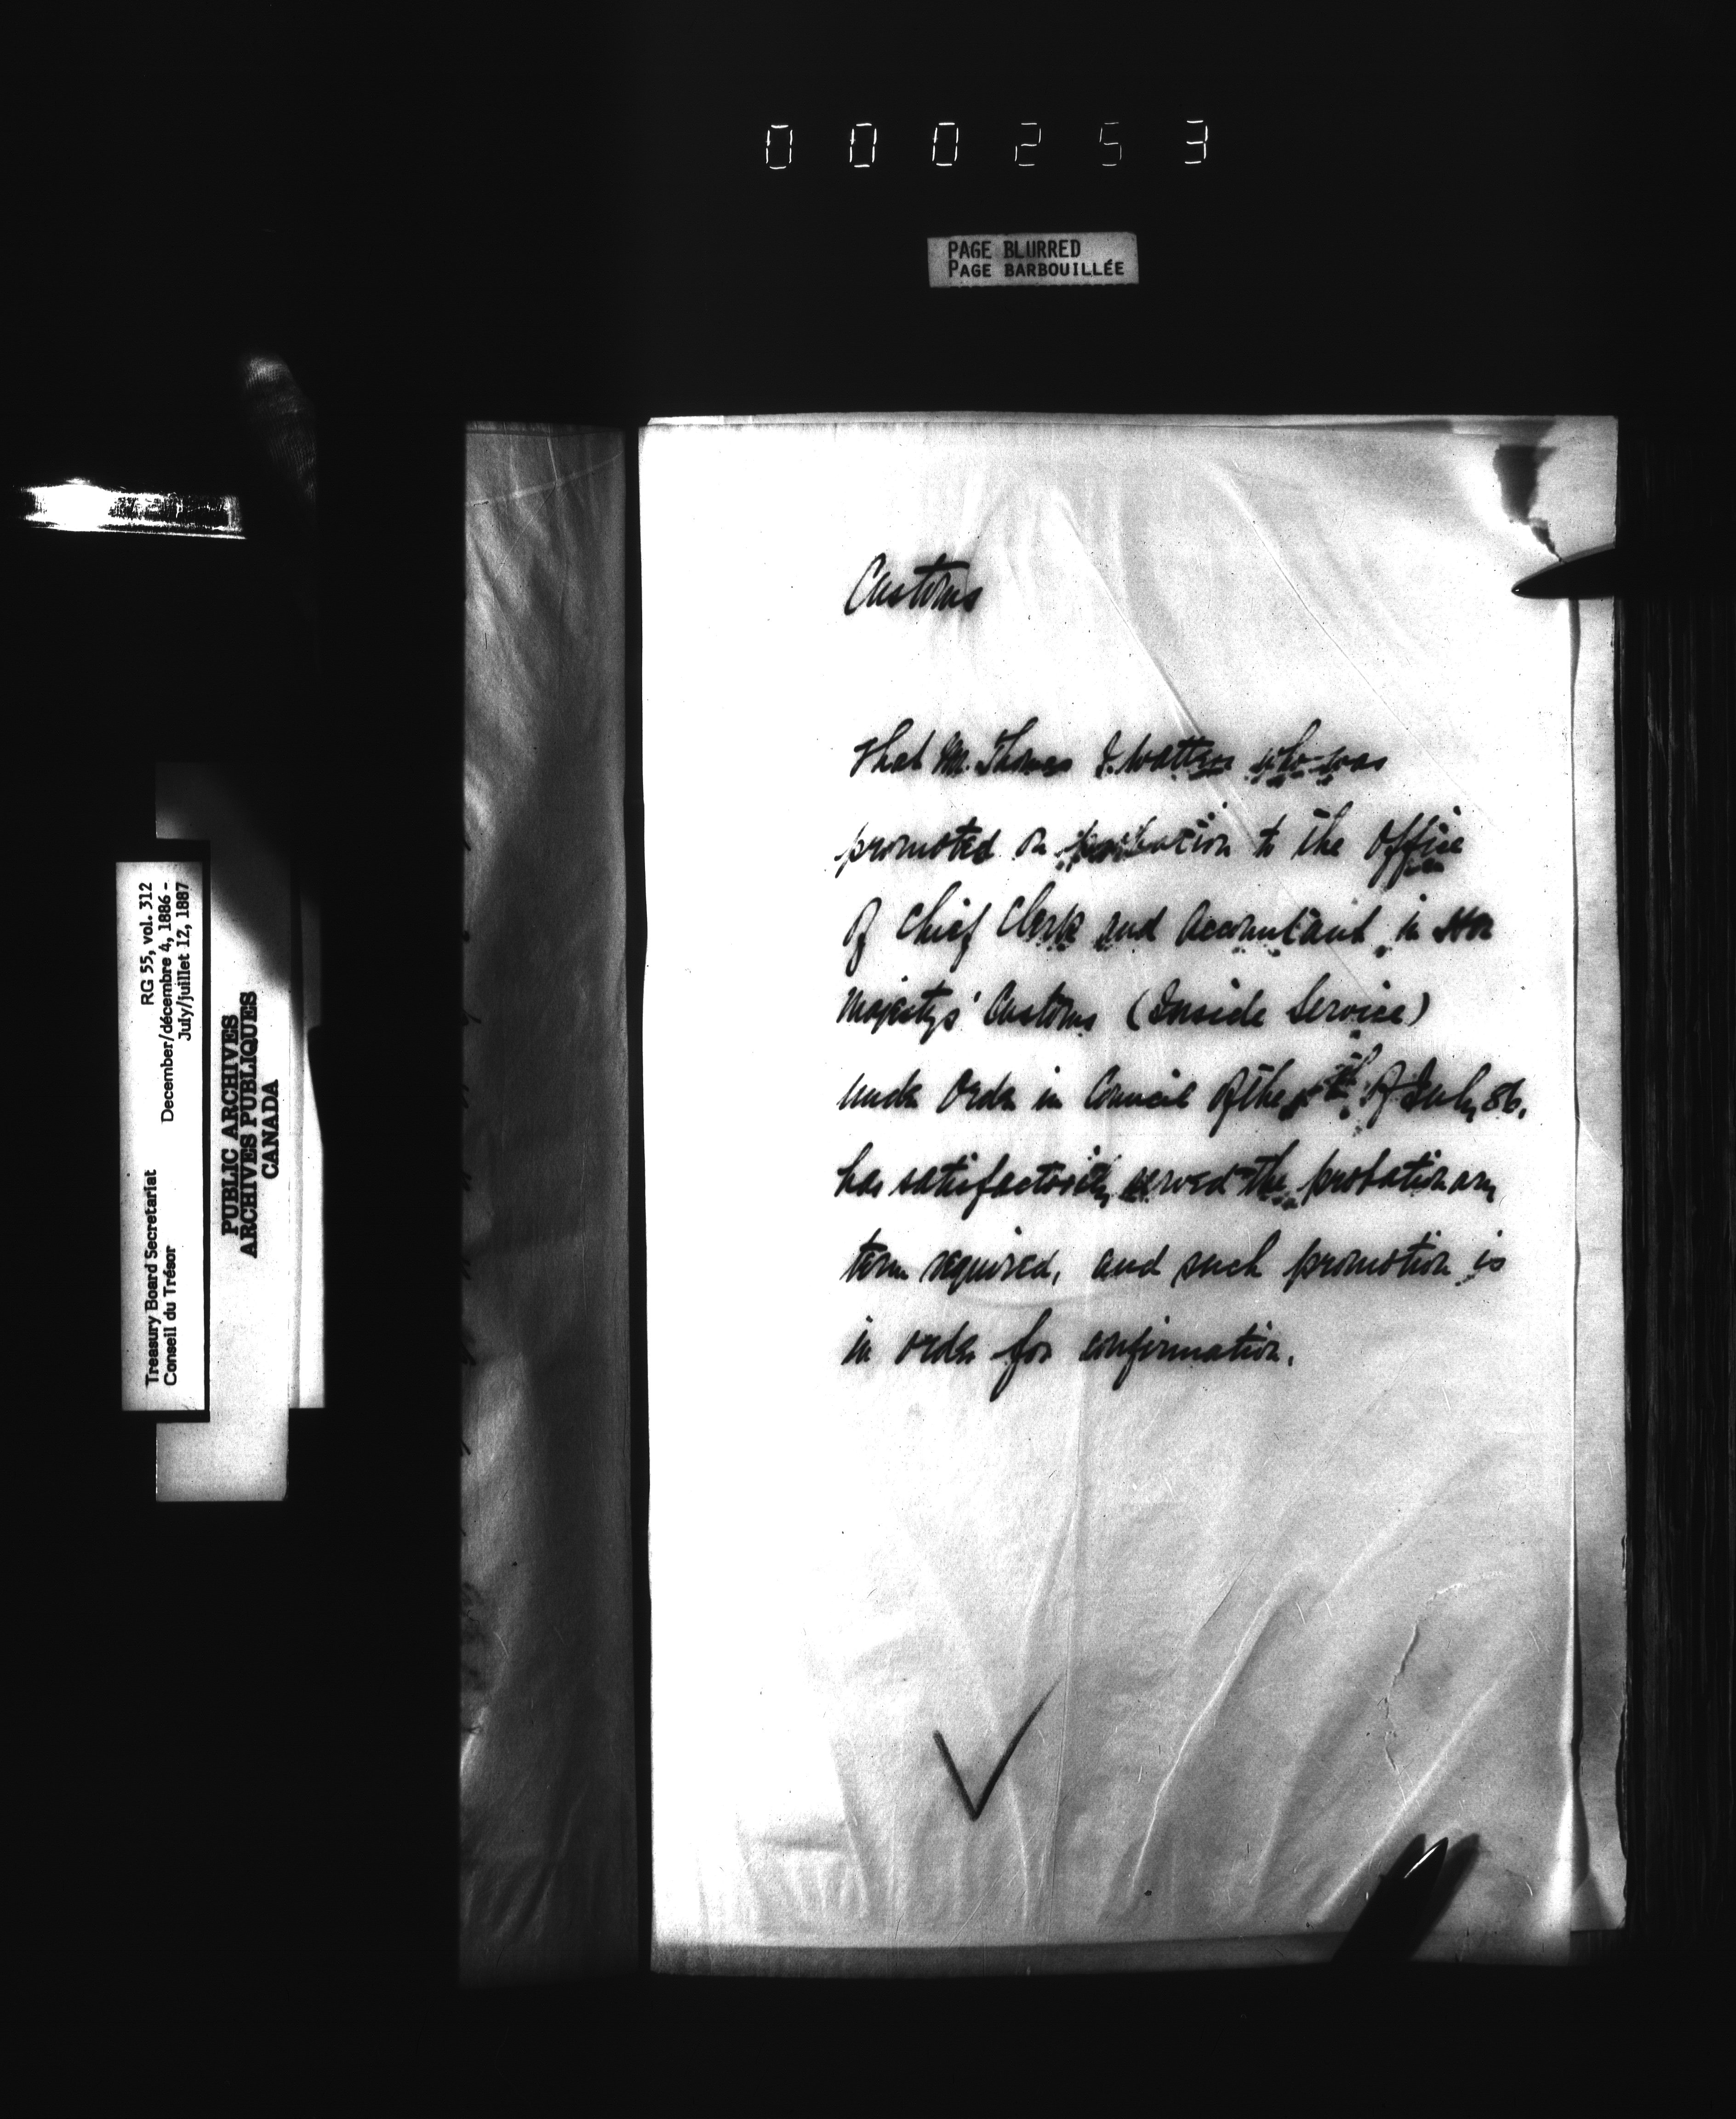 000253
PAGE BLURRED
PAGE BARBOUILLÉE
Customs
That Mr. Thomas J. Watters who was
promoted on probation to the Office
of Chief Clerk and Accountant in Her
Majesty's Customs (Inside Service)
under Order in Council of the of July 86,
has satisfactorily served the probationary
term required, and such promotion is
in order for confirmation.
Treasury Board Secretariat RG 55, vol. 312
Conseil du Trésor December/décembre 4, 1886 -
July/juillet 12, 1887
PUBLIC ARCHIVES
ARCHIVES PUBLIQUES
CANADA